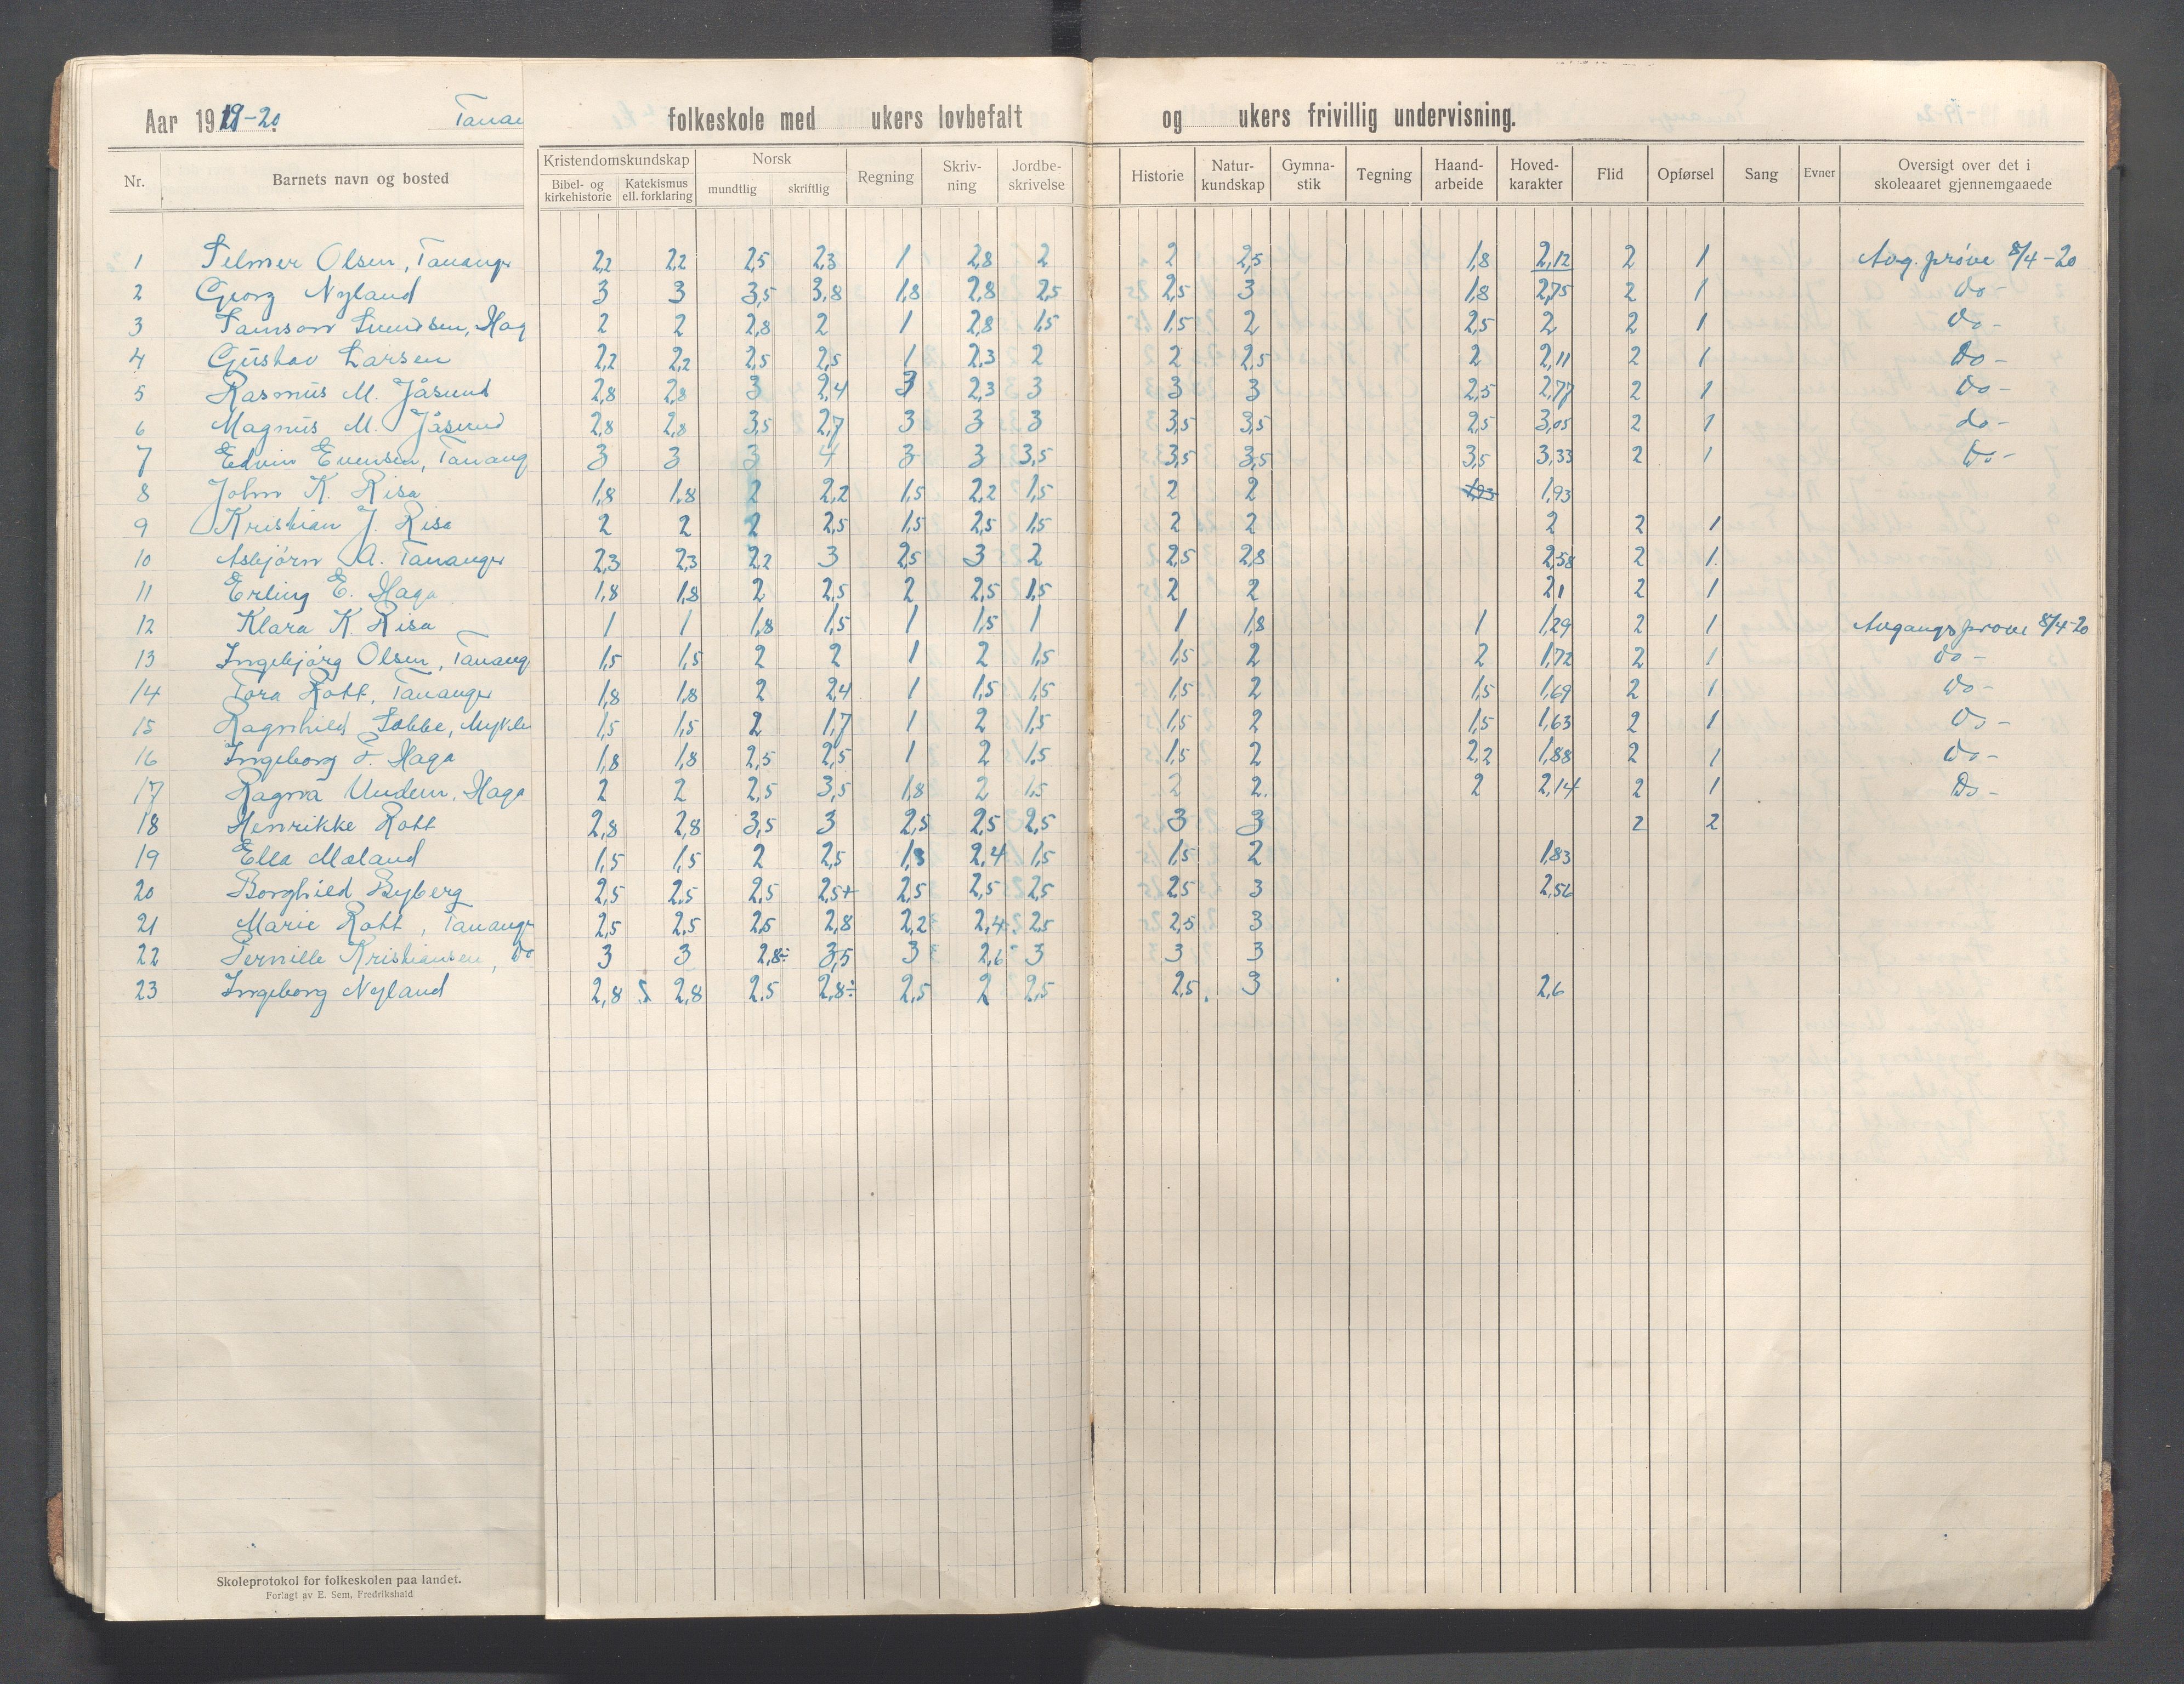 Aar 1919-20. Tanan folkeskole med ukers lovbefalt og ukers frivillig undervisning.
Nr. Barnets navn og bosted Kristendomskundskap Bibel- og kirkehistorie Katekismus ell. forklaring Norsk mundtlig skriftlig Regning Skriv-ning Jordbe-skrivelse Historie Natur-kundskap Gymna-stik Tegning Haand-arbeide Hoved-karakter Flid Opførsel Sang Evner Oversigt over det i skoleaaret gjennemgaaede
1 Selmer Olsen, Tananger 2,2 2,2 2,5 2,3 1 2,8 2 2 2,5 1,8 2,12 2 1 Avg. prøve 8/4-20
2 Georg Nyland 3 3 3,5 3,8 1,8 2,8 2,5 2,5 3 1,8 2,75 2 1 Do-
3 Samson 2 2 2,8 2 1 2,8 1,5 1,5 2 2,5 2 2 1 Do-
4 Gustav Larsen 2,2 2,2 2,5 2,5 1 2,3 2 2 2,5 2 2,11 2 1 Do-
5 Rasmus M. Jåsund 2,8 2,8 3 2,4 3 2,3 3 3 3 2,5 2,77 2 1 Do-
6 Magnus M. Jåsund 2,8 2,8 3,5 2,7 3 3 3 3,5 3,5 2,5 3,05 2 1 do-
7 Edvin Evensen, Tanang 3 3 3 4 3 3 3,5 3,5 3,5 3,5 3,33 2 1 Do-
8 John K. Risa 1,8 1,8 2 2,2 1,5 2,2 1,5 2 2 1,93 1,93
9 Kristian J. Risa 2 2 2 2,5 1,5 2,5 1,5 2 2 2 2 1
10 Asbjørn A. Tananger 2,3 2,3 2,2 3 2,5 3 2 2,5 2,8 2,58 2 1
11 Erling E. Haga 1,8 1,8 2 2,5 2 2,5 1,5 2 2 2,1 2 1
12 Klara K. Risa 1 1 1,8 1,5 1 1,5 1 1 1,8 1 1,29 2 1 Avgangsprøve 8/4-20
13 Ingebjørg Olsen, Tanang 1,5 1,5 2 2 1 2 1,5 1,5 2 2 1,72 2 1 do-
14 Tora Rott, Tananger 1,8 1,8 2 2,4 1 1,5 1,5 1,5 2 1,5 1,69 2 1 Do-
15 Ragnhild Løbbe, Mykle 1,5 1,5 2 1,7 1 2 1,5 1,5 2 1,5 1,63 2 1 Do-
16 Ingeborg F. Haga 1,8 1,8 2,5 2,5 1 2 1,5 1,5 2 2,2 1,88 2 1 Do-
17 Ragna Undem, Haga 2 2 2,5 3,5 1,8 2 1,5 2 2 2 2,14 2 1 Do-
18 Henrikke Rott 2,8 2,8 3,5 3 2,5 2,5 2,5 3 3 2 2
19 Ella Mæland 1,5 1,5 2 2,5 1,8 2,4 1,5 1,5 2 1,83
20 Borghild Byberg 2,5 2,5 2,5 2,5+ 2,5 2,5 2,5 2,5 3 2,56
21 Marie Rott, Tanangr 2,5 2,5 2,5 2,8 2,2 2,4 2,5 2,5 3
22 Pernille Kristiansen, Do 3 3 2,8÷ 3,5 3 2,6 3 3 3
23 Ingeborg Nyland 2,8 2,8 2,5 2,8÷ 2,5 2 2,5 2,5 3 2,6
Skoleprotokol for folkeskolen paa landet.
Forlagt av E. Sem, Fredrikshald